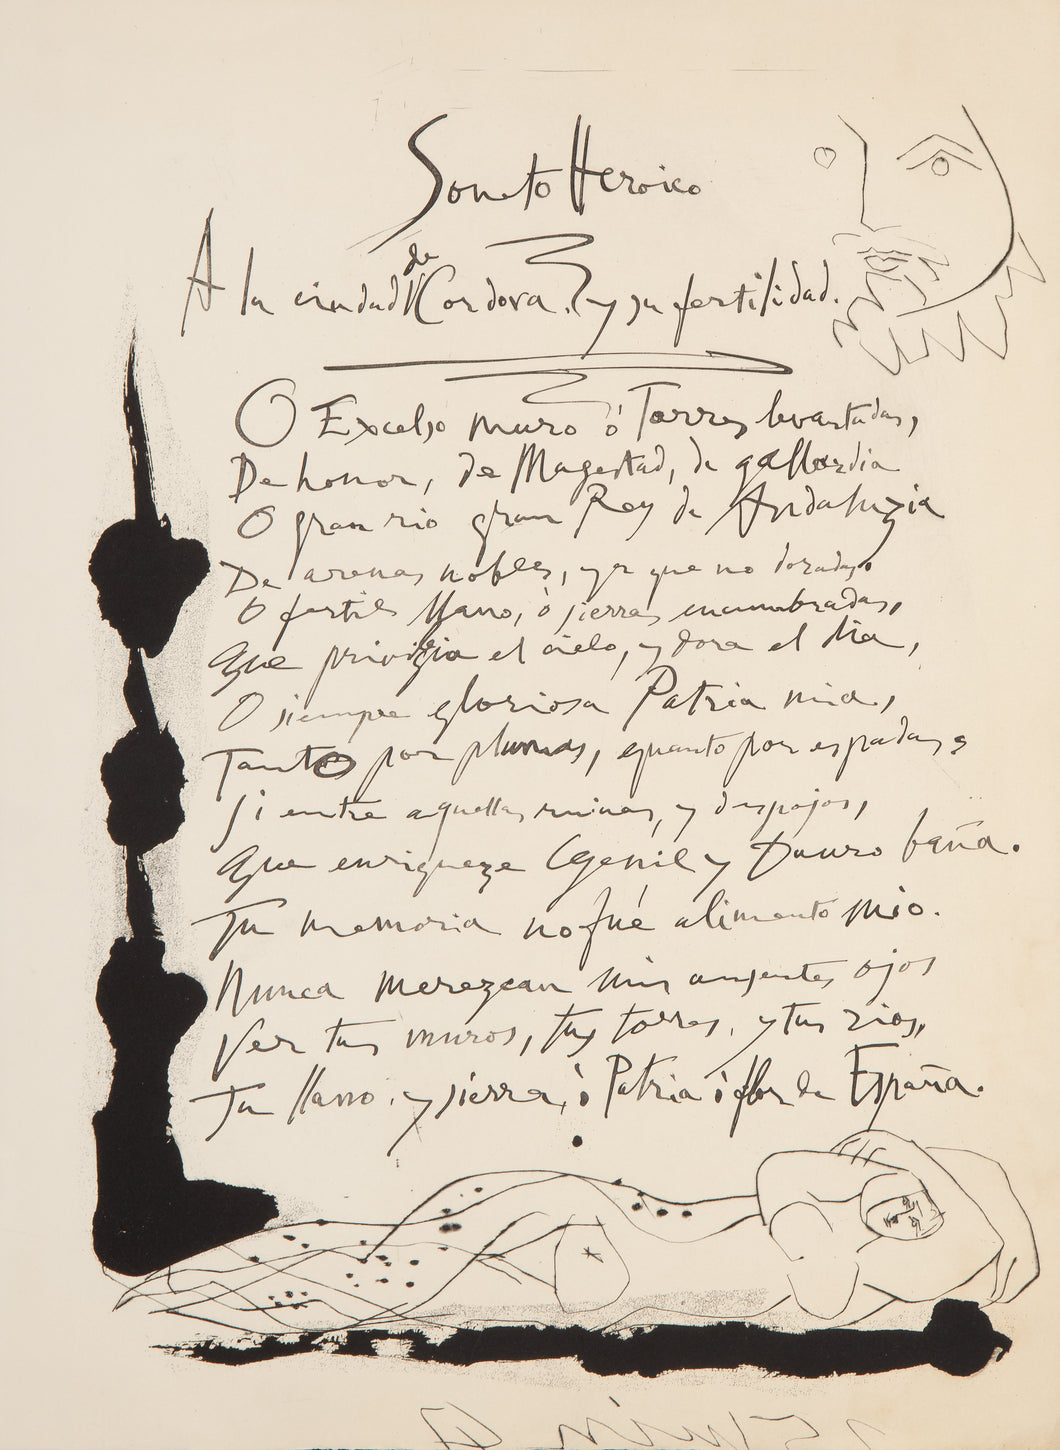 Soneto Heroico
A la ciudad de Cordova. y su fertilidad.
O Excelso muro ó Torres levantadas,
De honor, de Magestad, de gallardia
O gran rio gran Rey de Andaluzia
De arenas nobles, ya que no doradas.
O fertil llano, ò sierras encumbradas,
Que privigia el cielo, y dora el dia,
O siempre gloriosa Patria mia,
Tanto por plumas, quanto por espadas,
Si entre aquellas ruinas, y despojos,
Que enriqueze Genil y Dauro baña.
Tu memoria no fué alimento mio.
Nunca merezcan mis ausentes ojos
Ver tus muros, tus torres, y tus rios,
Tu llano. y sierra, ò Patria ò flor de España.